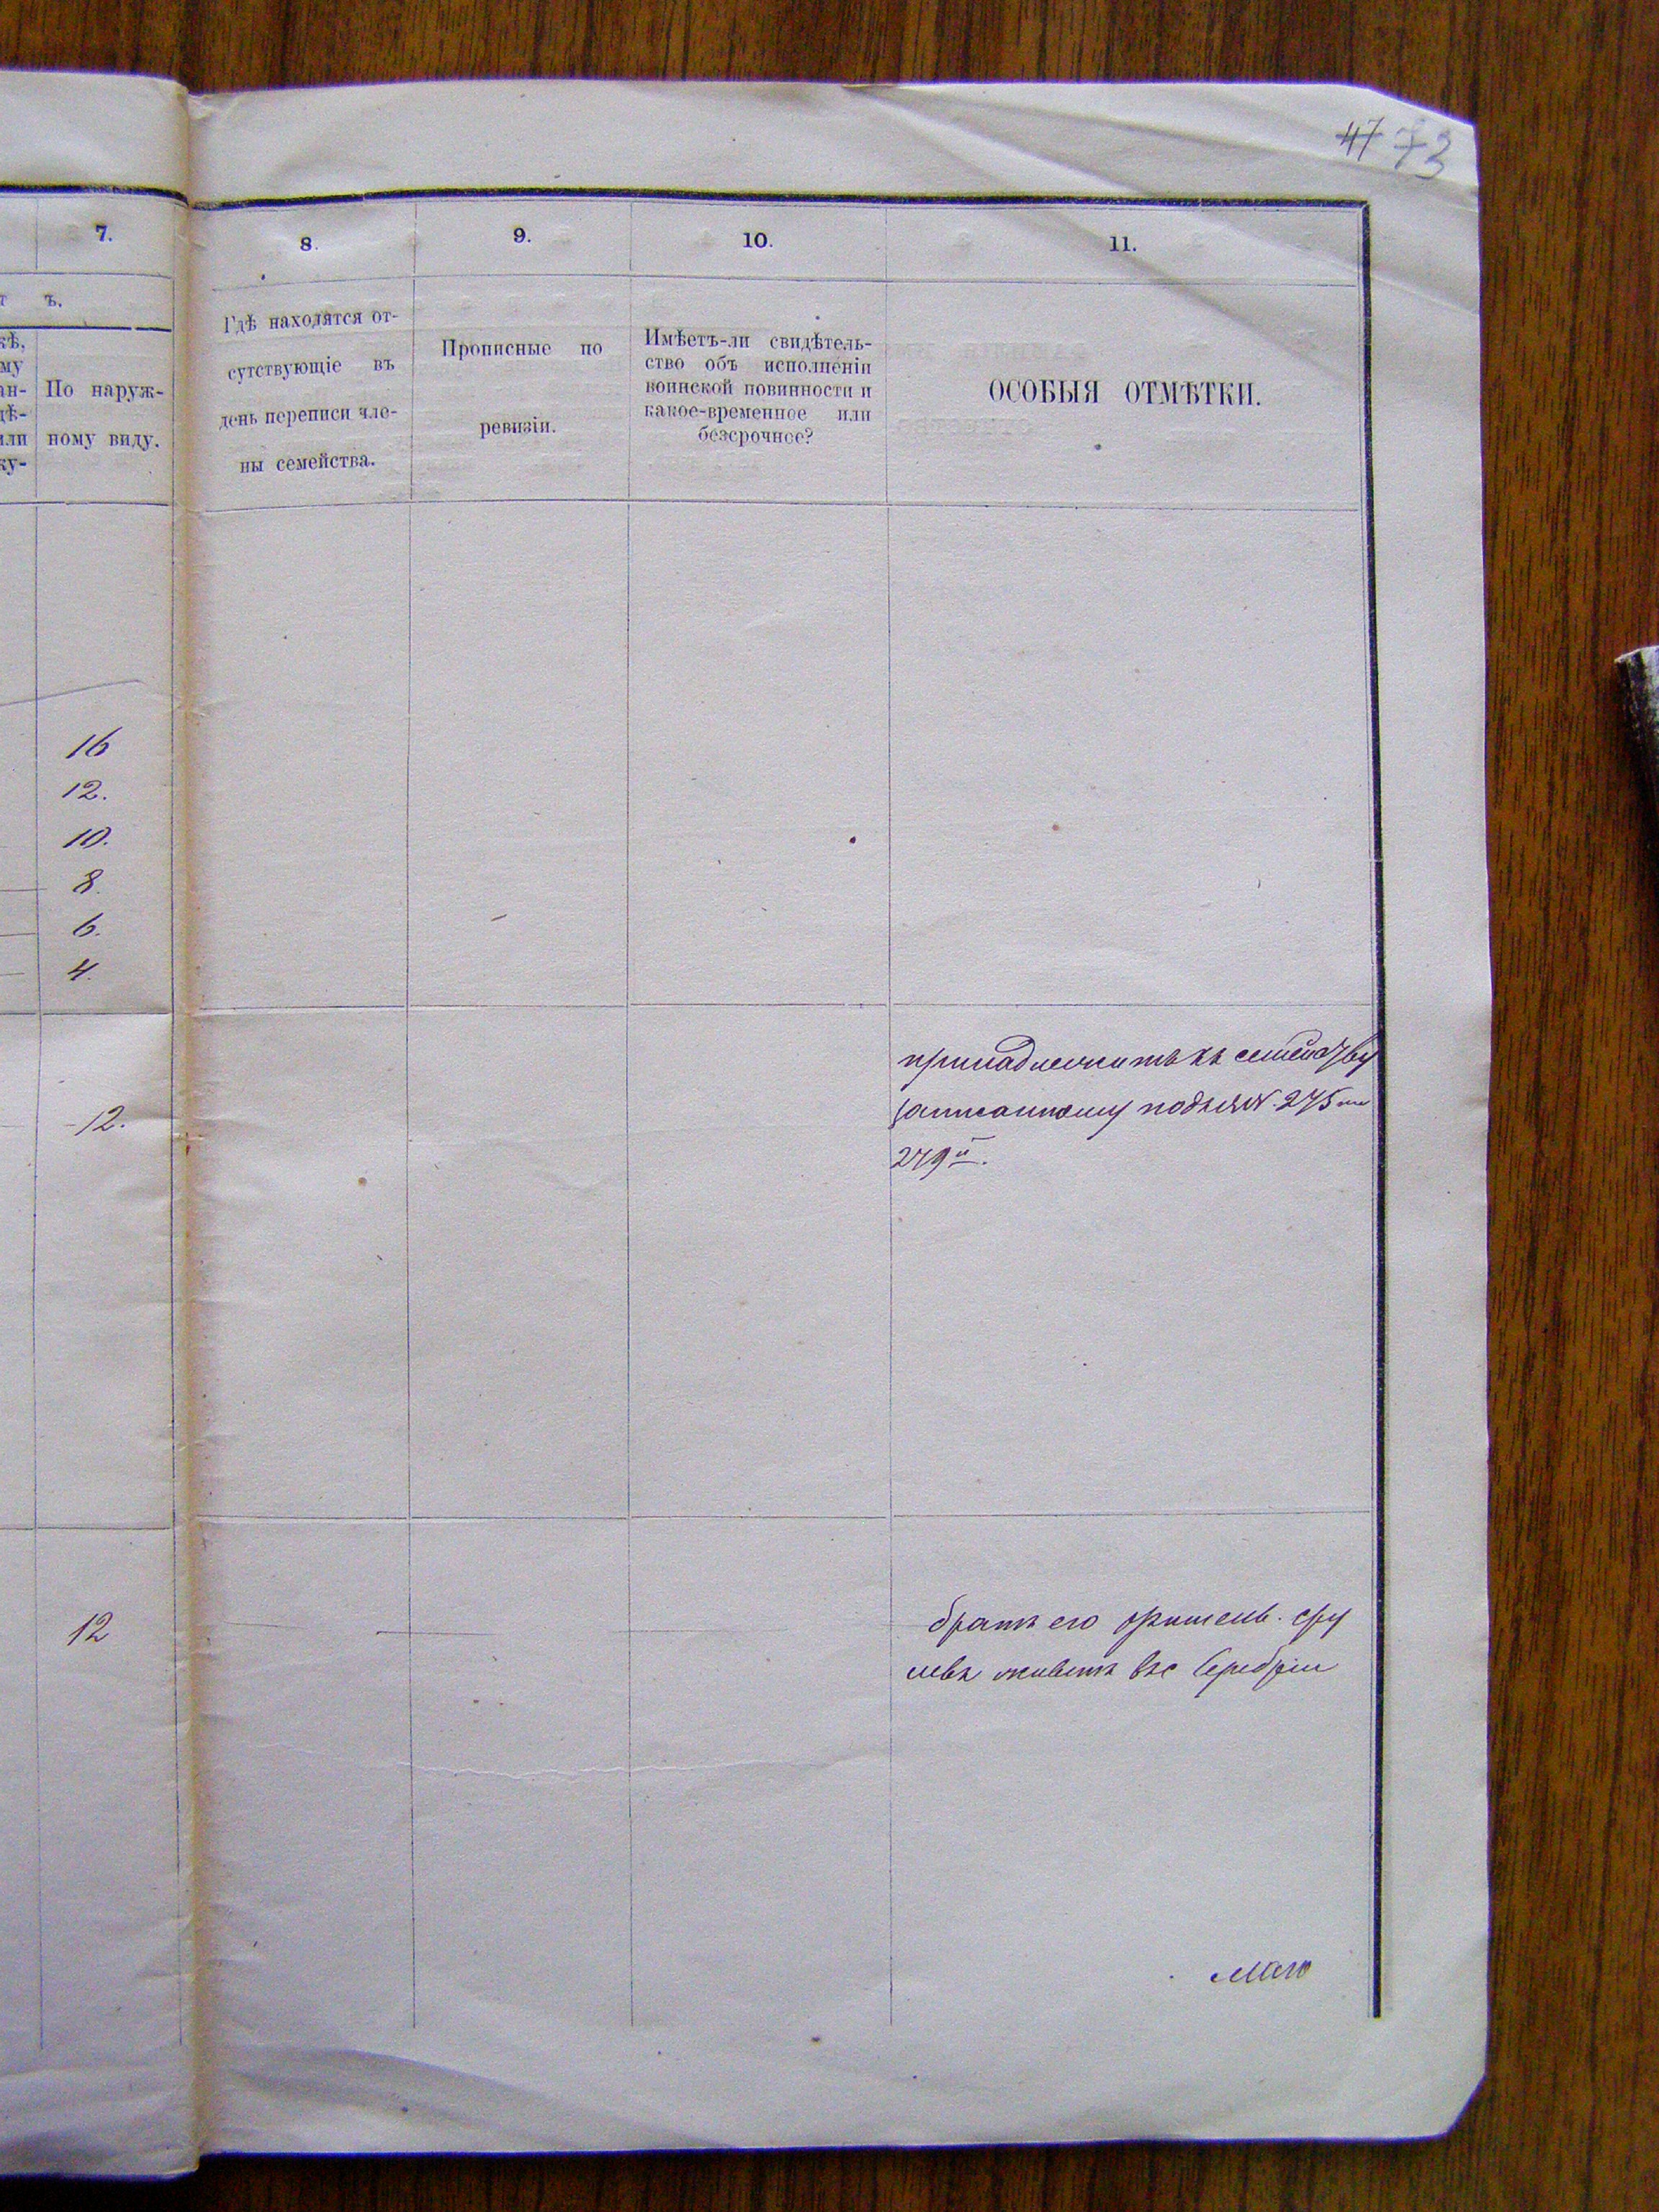 47 73
7.
8.
9.
10.
11.
т ъ.
кѣ,
му
ан-
дѣ-
или
ку-
По наруж-
ному виду.
Гдѣ находятся от-
сутствующіе въ
день переписи чле-
ны семейства.
Прописные по
ревизіи.
Имѣетъ-ли свидѣтель-
ство объ исполненіи
воинской повинности и
какое-временное или
безсрочное?
ОСОБЫЯ ОТМѢТКИ.
16
12.
10.
8.
6.
4.
принадлежитъ къ семейству
записанному подъ №№ 275 и
279й.
12.
12
братъ его сру
левъ живетъ въ с